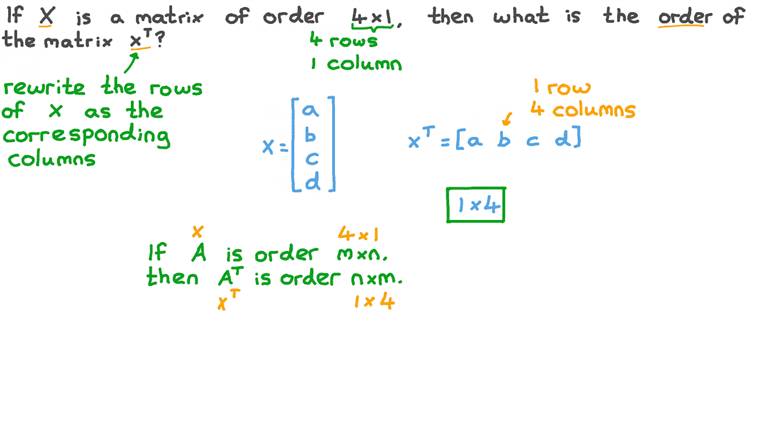 If X is a matrix of order 4×1, then what is the order of
the matrix xᵀ?
4 rows
1 column
rewrite the rows
of X as the
corresponding
columns
X = [a
b
c
d]
1 row
4 columns
xᵀ = [a b c d]
1×4
x 4×1
If A is order m×n,
then Aᵀ is order n×m.
xᵀ 1×4